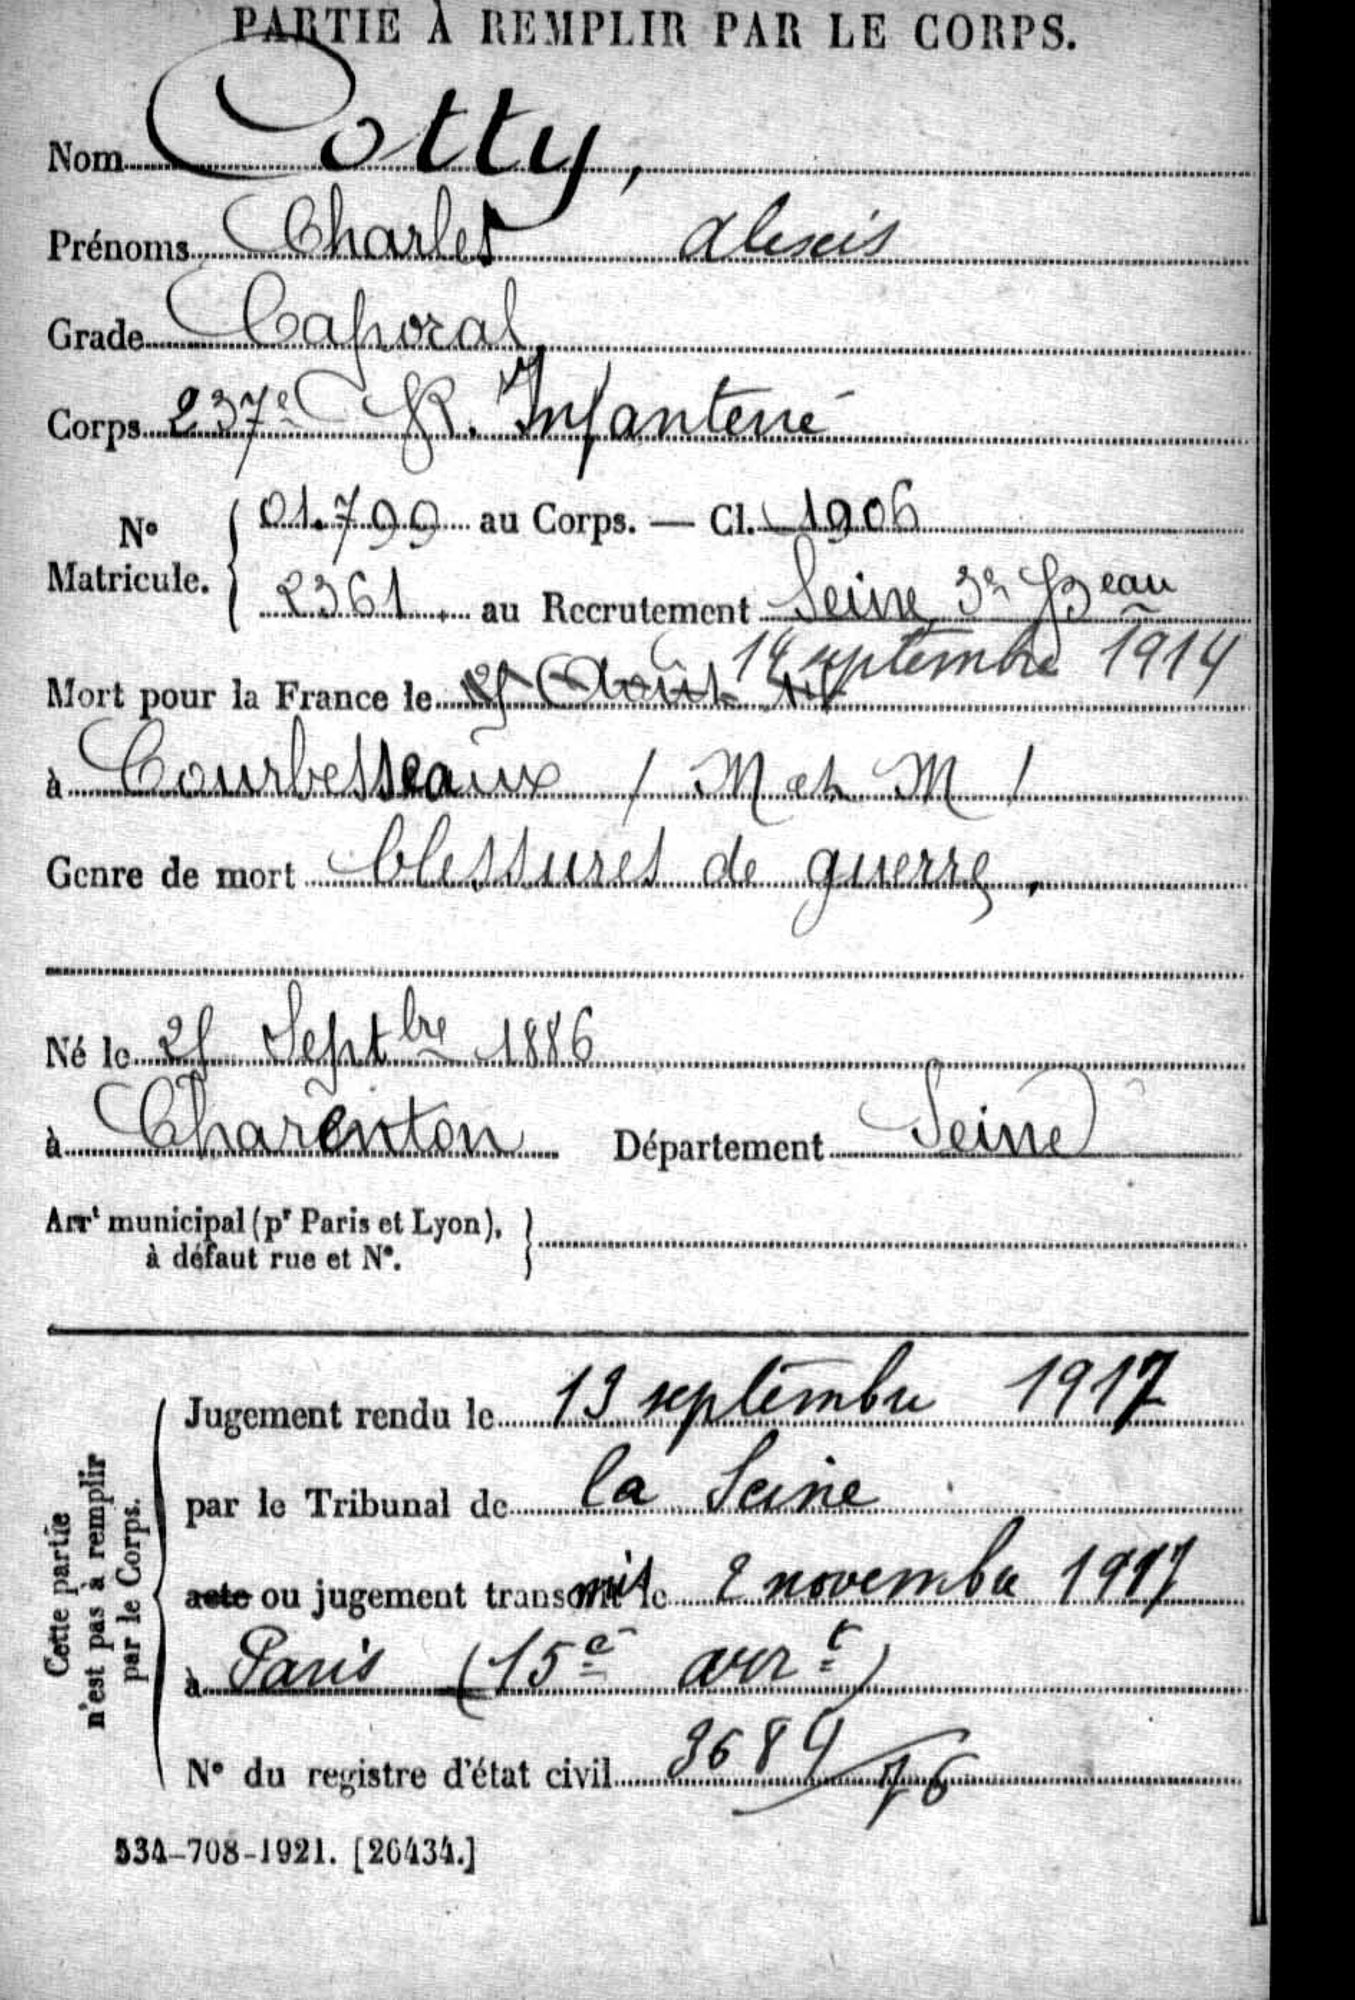 PARTIE À REMPLIR PAR LE CORPS.
Nom Cotty,
Prénoms Charles Alexis
Grade Caporal
Corps 237e R. Infanterie
No Matricule. { 01.799 au Corps. — Cl. 1906
2361 au Recrutement Seine 3e Beau
14 septembre 1914
Mort pour la France le 25 Août 14
à Courbesseaux / M et M /
Genre de mort blessures de guerre.
Né le 25 Septbre 1886
à Charenton Département Seine
Arrt municipal (pr Paris et Lyon), }
à défaut rue et No.
Cette partie n'est pas à remplir par le Corps.
Jugement rendu le 13 septembre 1917
par le Tribunal de la Seine
acte ou jugement transmis le 2 novembre 1917
à Paris (15e arrt)
No du registre d'état civil 3689/76
534-708-1921. [26434.]